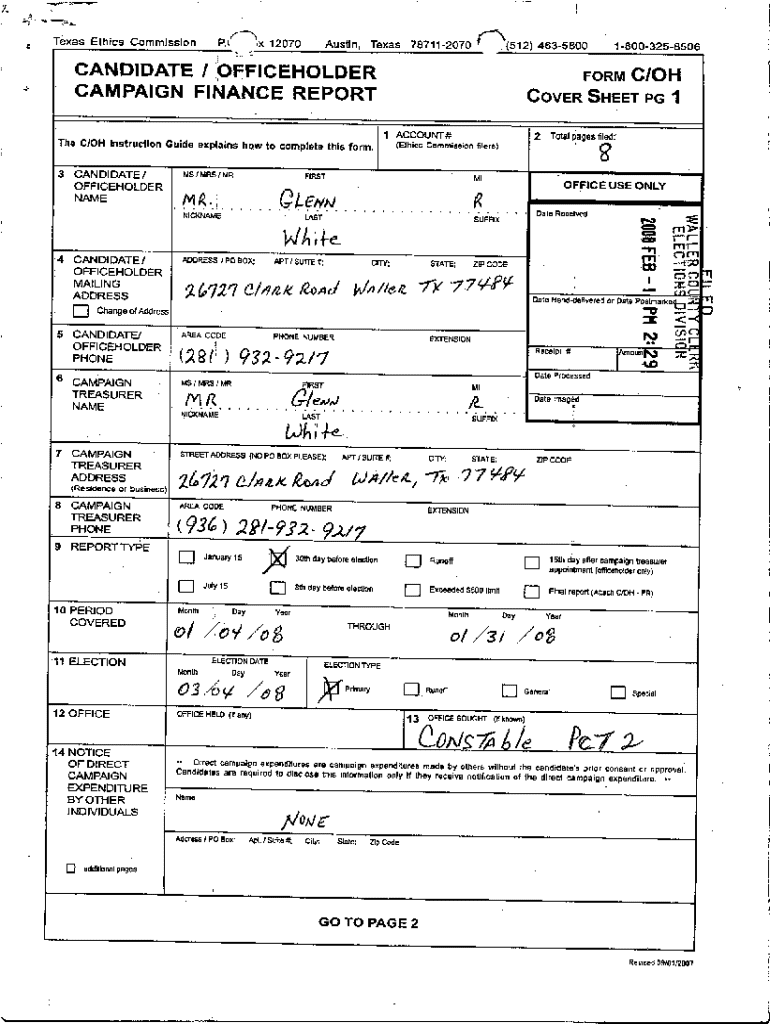 Texas Ethics Commission P. x 12070 Austin, Texas 78711-2070 (512) 463-5800 1-800-325-8506
CANDIDATE / OFFICEHOLDER
CAMPAIGN FINANCE REPORT
FORM C/OH
COVER SHEET PG 1
The C/OH Instruction Guide explains how to complete this form.
1 ACCOUNT #
(Ethics Commission filers)
2 Total pages filed:
8
3 CANDIDATE /
OFFICEHOLDER
NAME
MS / MRS / MR FIRST MI
MR. GLENN R
NICKNAME LAST SUFFIX
White
OFFICE USE ONLY
Date Received
FILED
WALLER COUNTY CLERK
ELECTIONS DIVISION
2008 FEB -1 PM 2:29
Date Hand-delivered or Date Postmarked
Receipt # Amount
Date Processed
Date Imaged
4 CANDIDATE /
OFFICEHOLDER
MAILING
ADDRESS
Change of Address
ADDRESS / PO BOX; APT / SUITE #; CITY; STATE; ZIP CODE
26727 Clark Road Waller TX 77484
5 CANDIDATE/
OFFICEHOLDER
PHONE
AREA CODE PHONE NUMBER EXTENSION
(281) 932-9217
6 CAMPAIGN
TREASURER
NAME
MS / MRS / MR FIRST MI
MR Glenn R.
NICKNAME LAST SUFFIX
White
7 CAMPAIGN
TREASURER
ADDRESS
(Residence or business)
STREET ADDRESS (NO PO BOX PLEASE); APT / SUITE #; CITY; STATE; ZIP CODE
26727 Clark Road Waller, Tx 77484
8 CAMPAIGN
TREASURER
PHONE
AREA CODE PHONE NUMBER EXTENSION
(936) 281-932-9217
9 REPORT TYPE
January 15 30th day before election Runoff 15th day after campaign treasurer
appointment (officeholder only)
July 15 8th day before election Exceeded $500 limit Final report (Attach C/OH - FR)
10 PERIOD
COVERED
Month Day Year
01 / 04 / 08
THROUGH
Month Day Year
01 / 31 / 08
11 ELECTION
ELECTION DATE
Month Day Year
03/04 /08
ELECTION TYPE
Primary Runoff General Special
12 OFFICE
OFFICE HELD (if any)
13 OFFICE SOUGHT (if known)
CONSTable PCT 2
14 NOTICE
OF DIRECT
CAMPAIGN
EXPENDITURE
BY OTHER
INDIVIDUALS
additional pages
** Direct campaign expenditures are campaign expenditures made by others without the candidate's prior consent or approval.
Candidates are required to disclose this information only if they receive notification of the direct campaign expenditure. **
Name
NONE
Address / PO Box; Apt. / Suite #; City; State; Zip Code
GO TO PAGE 2
Revised 09/01/2007